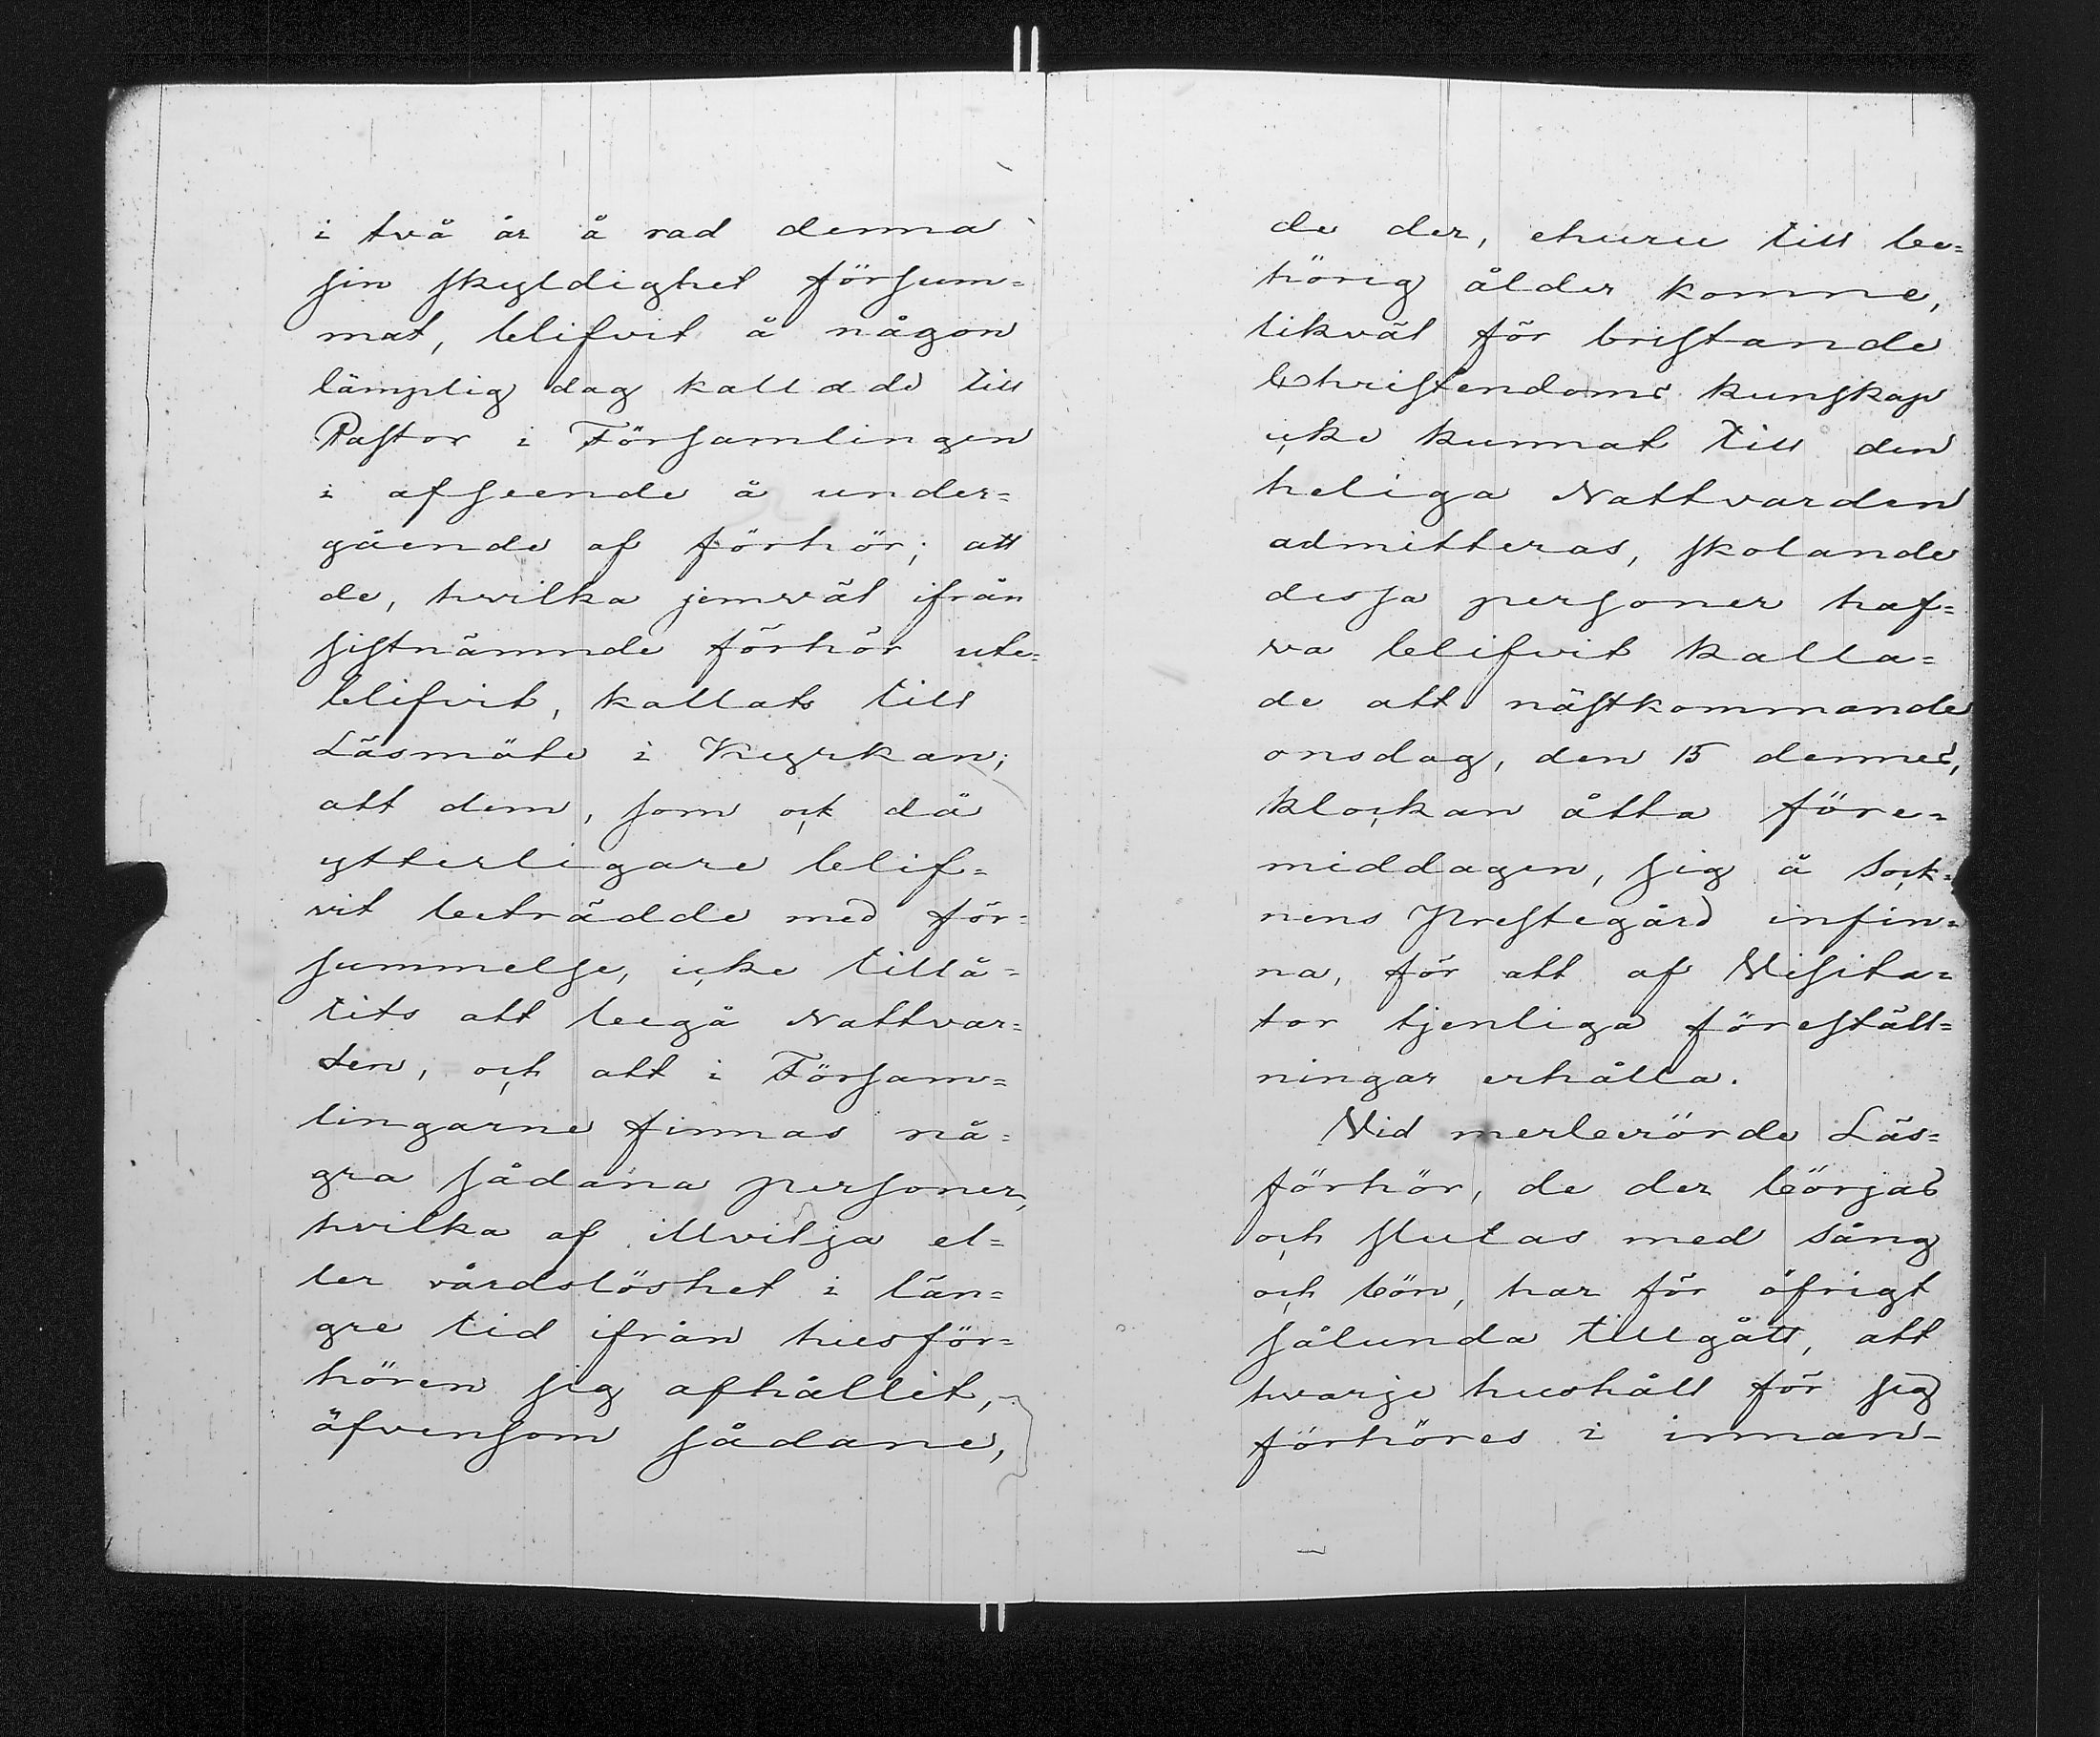 i två år å rad denna
sin skyldighet försum=
mat, blifvit å någon
lämplig dag kallade till
Pastor i Församlingen
i afseende å under=
gående af förhör; att
de, hvilka jemväl ifrån
sistnämnde förhör ute=
blifvit, kallats till
Läsmöte i Kyrkan;
att dem, som ock då
ytterligare blif=
vit beträdde med för=
summelse, icke tillå=
tits att begå Nattvar=
den, och att i Försam=
lingarne finnas nå=
gra sådana personer,
hvilka af illvilja el=
ler vårdslöshet i län=
gre tid ifrån husför=
hören sig afhållit,
äfvensom sådane,
de der, ehuru till be=
hörig ålder komne,
likväl för bristande
Christendoms kunskap
icke kunnat till den
heliga Nattvarden
admitteras, skolande
dessa personer haf=
va blifvit kalla=
de att nästkommande
onsdag, den 15 dennes,
klockan åtta före=
middagen, sig å Sock=
nens Prestegård infin=
na, för att af Visita=
tor tjenliga föreställ=
ningar erhålla.
Vid merberörde Läs=
förhör, de der börjas
och slutas med sång
och bön, har för öfrigt
sålunda tillgått, att
hvarje hushåll för sig
förhöres i innan-